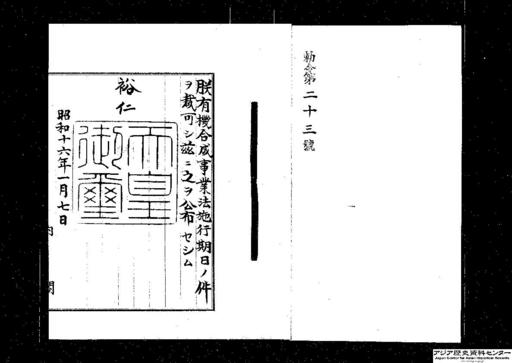 勅令第二十三號
朕有機合成事業法施行期日ノ件
ヲ裁可シ茲ニ之ヲ公布セシム
裕仁
天皇
御璽
昭和十六年一月七日
内閣
アジア歴史資料センター
Japan Center for Asian Historical Records